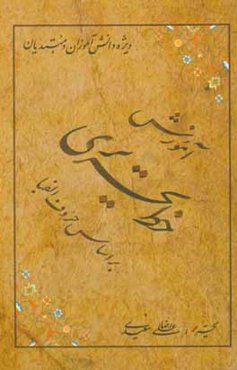 ویژه دانش آموزان و مبتدیان
آموزش
خط تحریری
بر اساس حروف الفبا
تحریر: